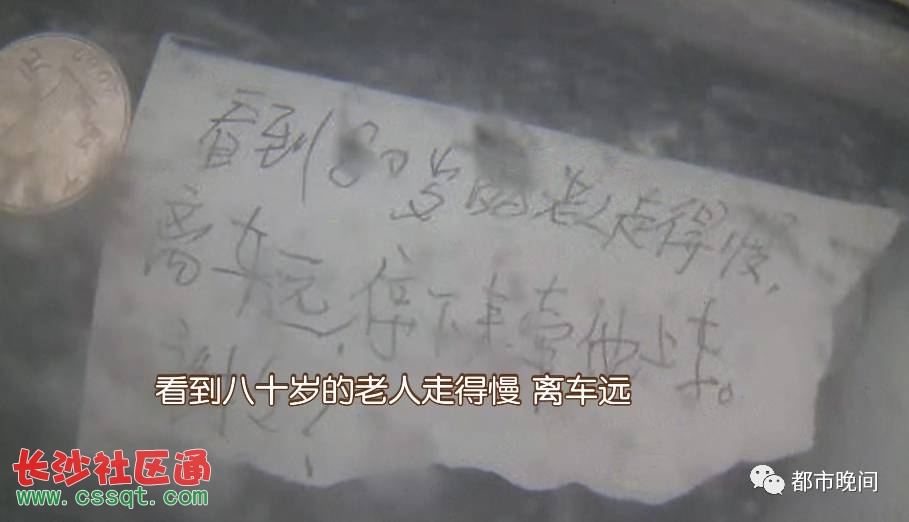 看到80岁的老人走得慢,
离车远,停下来等他上车。
谢谢!
看到八十岁的老人走得慢 离车远
长沙社区通
www.cssqt.com
都市晚间